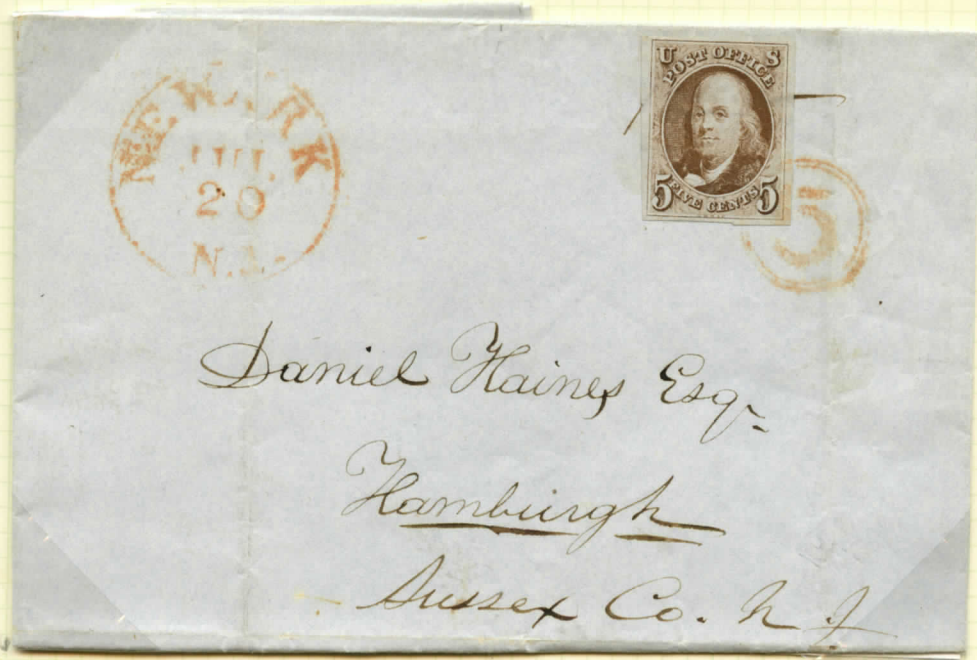 NEWARK
JUL
20
N.J.
U S
POST OFFICE
5 FIVE CENTS 5
5
Daniel Haines Esqr
Hamburgh
Sussex Co. N J